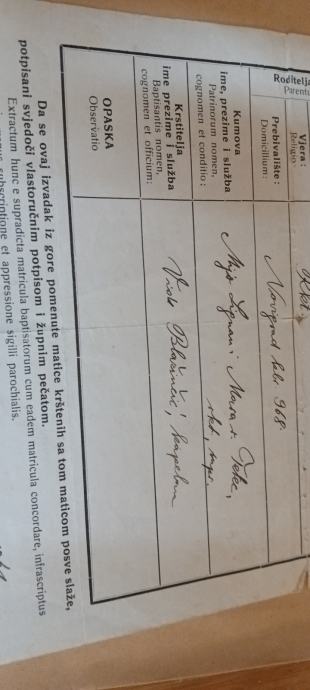 Roditelja
Parentum
Vjera:
Religio:
Rkt.
Prebivalište:
Domicilium:
Novigrad kbr. 968
Kumova
ime, prezime i služba
Patrinorum nomen,
cognomen et conditio:
Mijo i Mara r.
rkt,
Krstitelja
ime prezime i služba
Baptisantis nomen,
cognomen et officium:
Vide Blažinčić, kapelan
OPASKA
Observatio
Da se ovaj izvadak iz gore pomenute matice krštenih sa tom maticom posve slaže,
potpisani svjedoči vlastoručnim potpisom i župnim pečatom.
Extractum hunc e supradicta matricula baptisatorum cum eadem matricula concordare, infrascriptus
subscriptione et appressione sigilli parochialis.